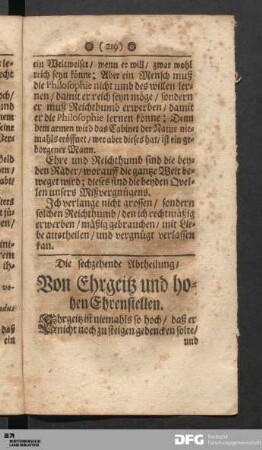 ( 219 )
ein Weltweiser / wenn er will / zwar wohl
reich seyn könne; Aber ein Mensch muß
die Philosophie nicht umb des willen ler-
nen / damit er reich seyn möge / sondern
er muß Reichthumb erwerben / damit
er die Philosophie lernen könne; Denn
dem armen wird das Cabinet der Natur nie-
mahls eröffnet / wer aber dieses hat / ist ein ge-
borgener Mann.
Ehre und Reichthumb sind die bey-
den Räder / worauff die gantze Welt be-
weget wird; dieses sind die beyden Qvel-
len unsers Mißvergnügens.
Ich verlange nicht grossen / sondern
solchen Reichthumb / den ich rechtmäßig
erwerben / mäßig gebrauchen / mit Lie-
be austheilen / und vergnügt verlassen
kan.
Die sechzehende Abtheilung /
Von Ehrgeitz und ho-
hen Ehrenstellen.
Ehrgeitz ist niemahls so hoch / daß er
nicht noch zu steigen gedencken solte /
und
daß
ein
DFG
Deutsche
Forschungsgemeinschaft